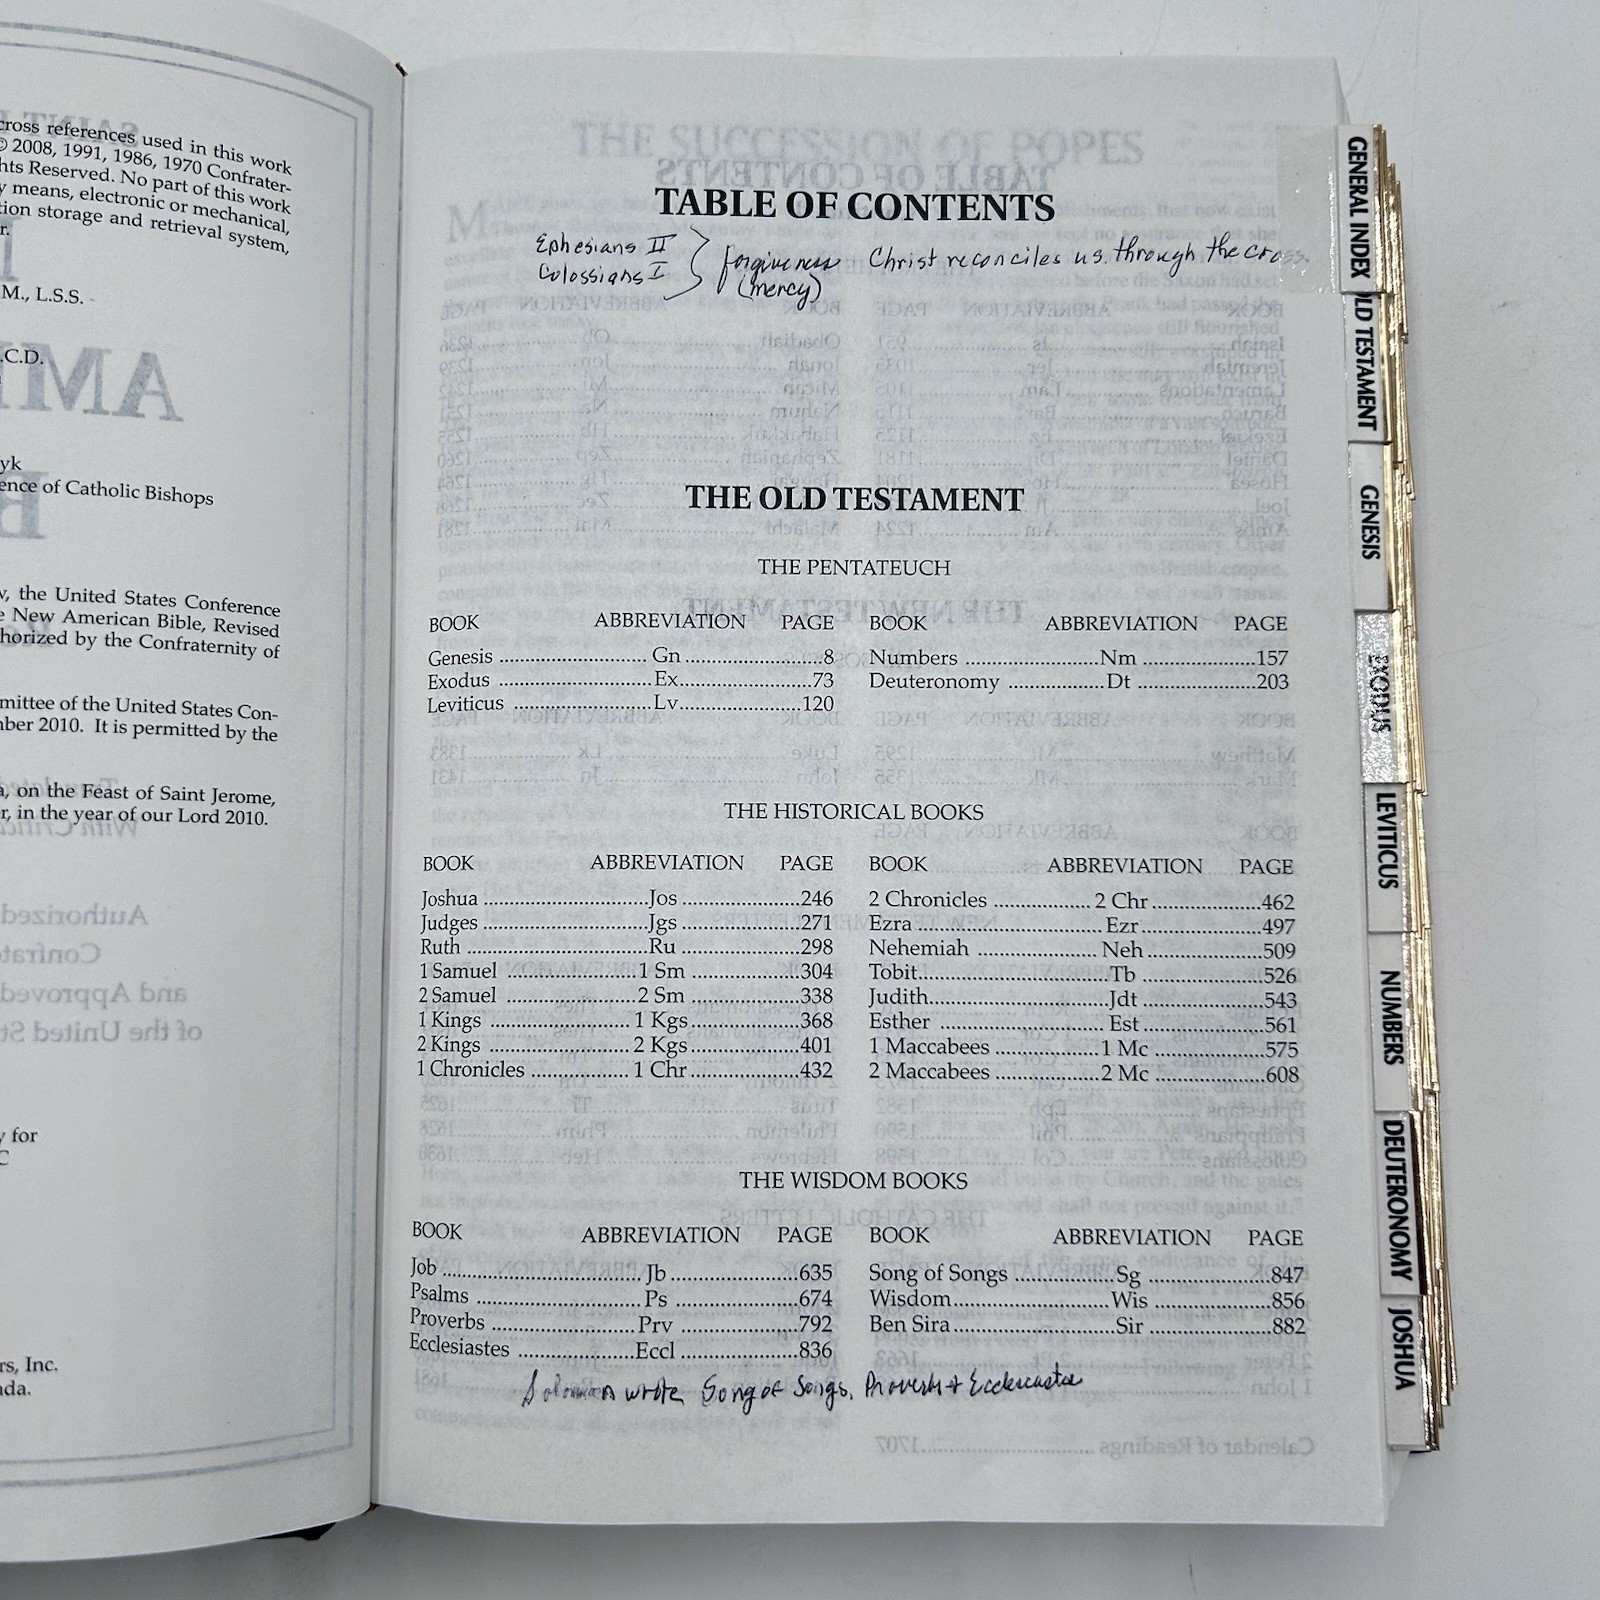 cross references used in this work
© 2008, 1991, 1986, 1970 Confrater-
hts Reserved. No part of this work
y means, electronic or mechanical,
tion storage and retrieval system,
r.
M., L.S.S.
.C.D.
yk
ence of Catholic Bishops
v, the United States Conference
e New American Bible, Revised
thorized by the Confraternity of
mmittee of the United States Con-
mber 2010. It is permitted by the
a, on the Feast of Saint Jerome,
r, in the year of our Lord 2010.
y for
C
rs, Inc.
ada.
TABLE OF CONTENTS
Ephesians II
Colossians I
forgiveness
(mercy)
Christ reconciles us through the cross.
THE OLD TESTAMENT
THE PENTATEUCH
BOOK ABBREVIATION PAGE BOOK ABBREVIATION PAGE
Genesis ............ Gn ............ 8 Numbers ............ Nm ............ 157
Exodus ............ Ex ............ 73 Deuteronomy ............ Dt ............ 203
Leviticus ............ Lv ............ 120
THE HISTORICAL BOOKS
BOOK ABBREVIATION PAGE BOOK ABBREVIATION PAGE
Joshua ............ Jos ............ 246 2 Chronicles ............ 2 Chr ............ 462
Judges ............ Jgs ............ 271 Ezra ............ Ezr ............ 497
Ruth ............ Ru ............ 298 Nehemiah ............ Neh ............ 509
1 Samuel ............ 1 Sm ............ 304 Tobit ............ Tb ............ 526
2 Samuel ............ 2 Sm ............ 338 Judith ............ Jdt ............ 543
1 Kings ............ 1 Kgs ............ 368 Esther ............ Est ............ 561
2 Kings ............ 2 Kgs ............ 401 1 Maccabees ............ 1 Mc ............ 575
1 Chronicles ............ 1 Chr ............ 432 2 Maccabees ............ 2 Mc ............ 608
THE WISDOM BOOKS
BOOK ABBREVIATION PAGE BOOK ABBREVIATION PAGE
Job ............ Jb ............ 635 Song of Songs ............ Sg ............ 847
Psalms ............ Ps ............ 674 Wisdom ............ Wis ............ 856
Proverbs ............ Prv ............ 792 Ben Sira ............ Sir ............ 882
Ecclesiastes ............ Eccl ............ 836
Solomon wrote Song of Songs, Proverbs +
GENERAL INDEX
OLD TESTAMENT
GENESIS
EXODUS
LEVITICUS
NUMBERS
DEUTERONOMY
JOSHUA